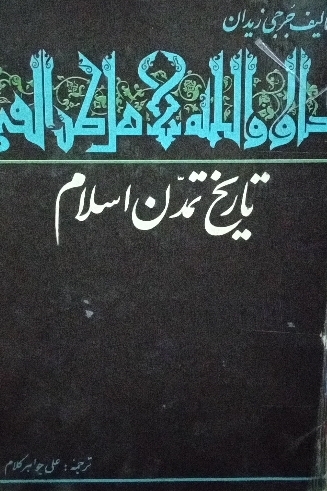 تالیف جرجی زیدان
تاریخ تمدّن اسلام
ترجمهٔ : علی جواهر کلام